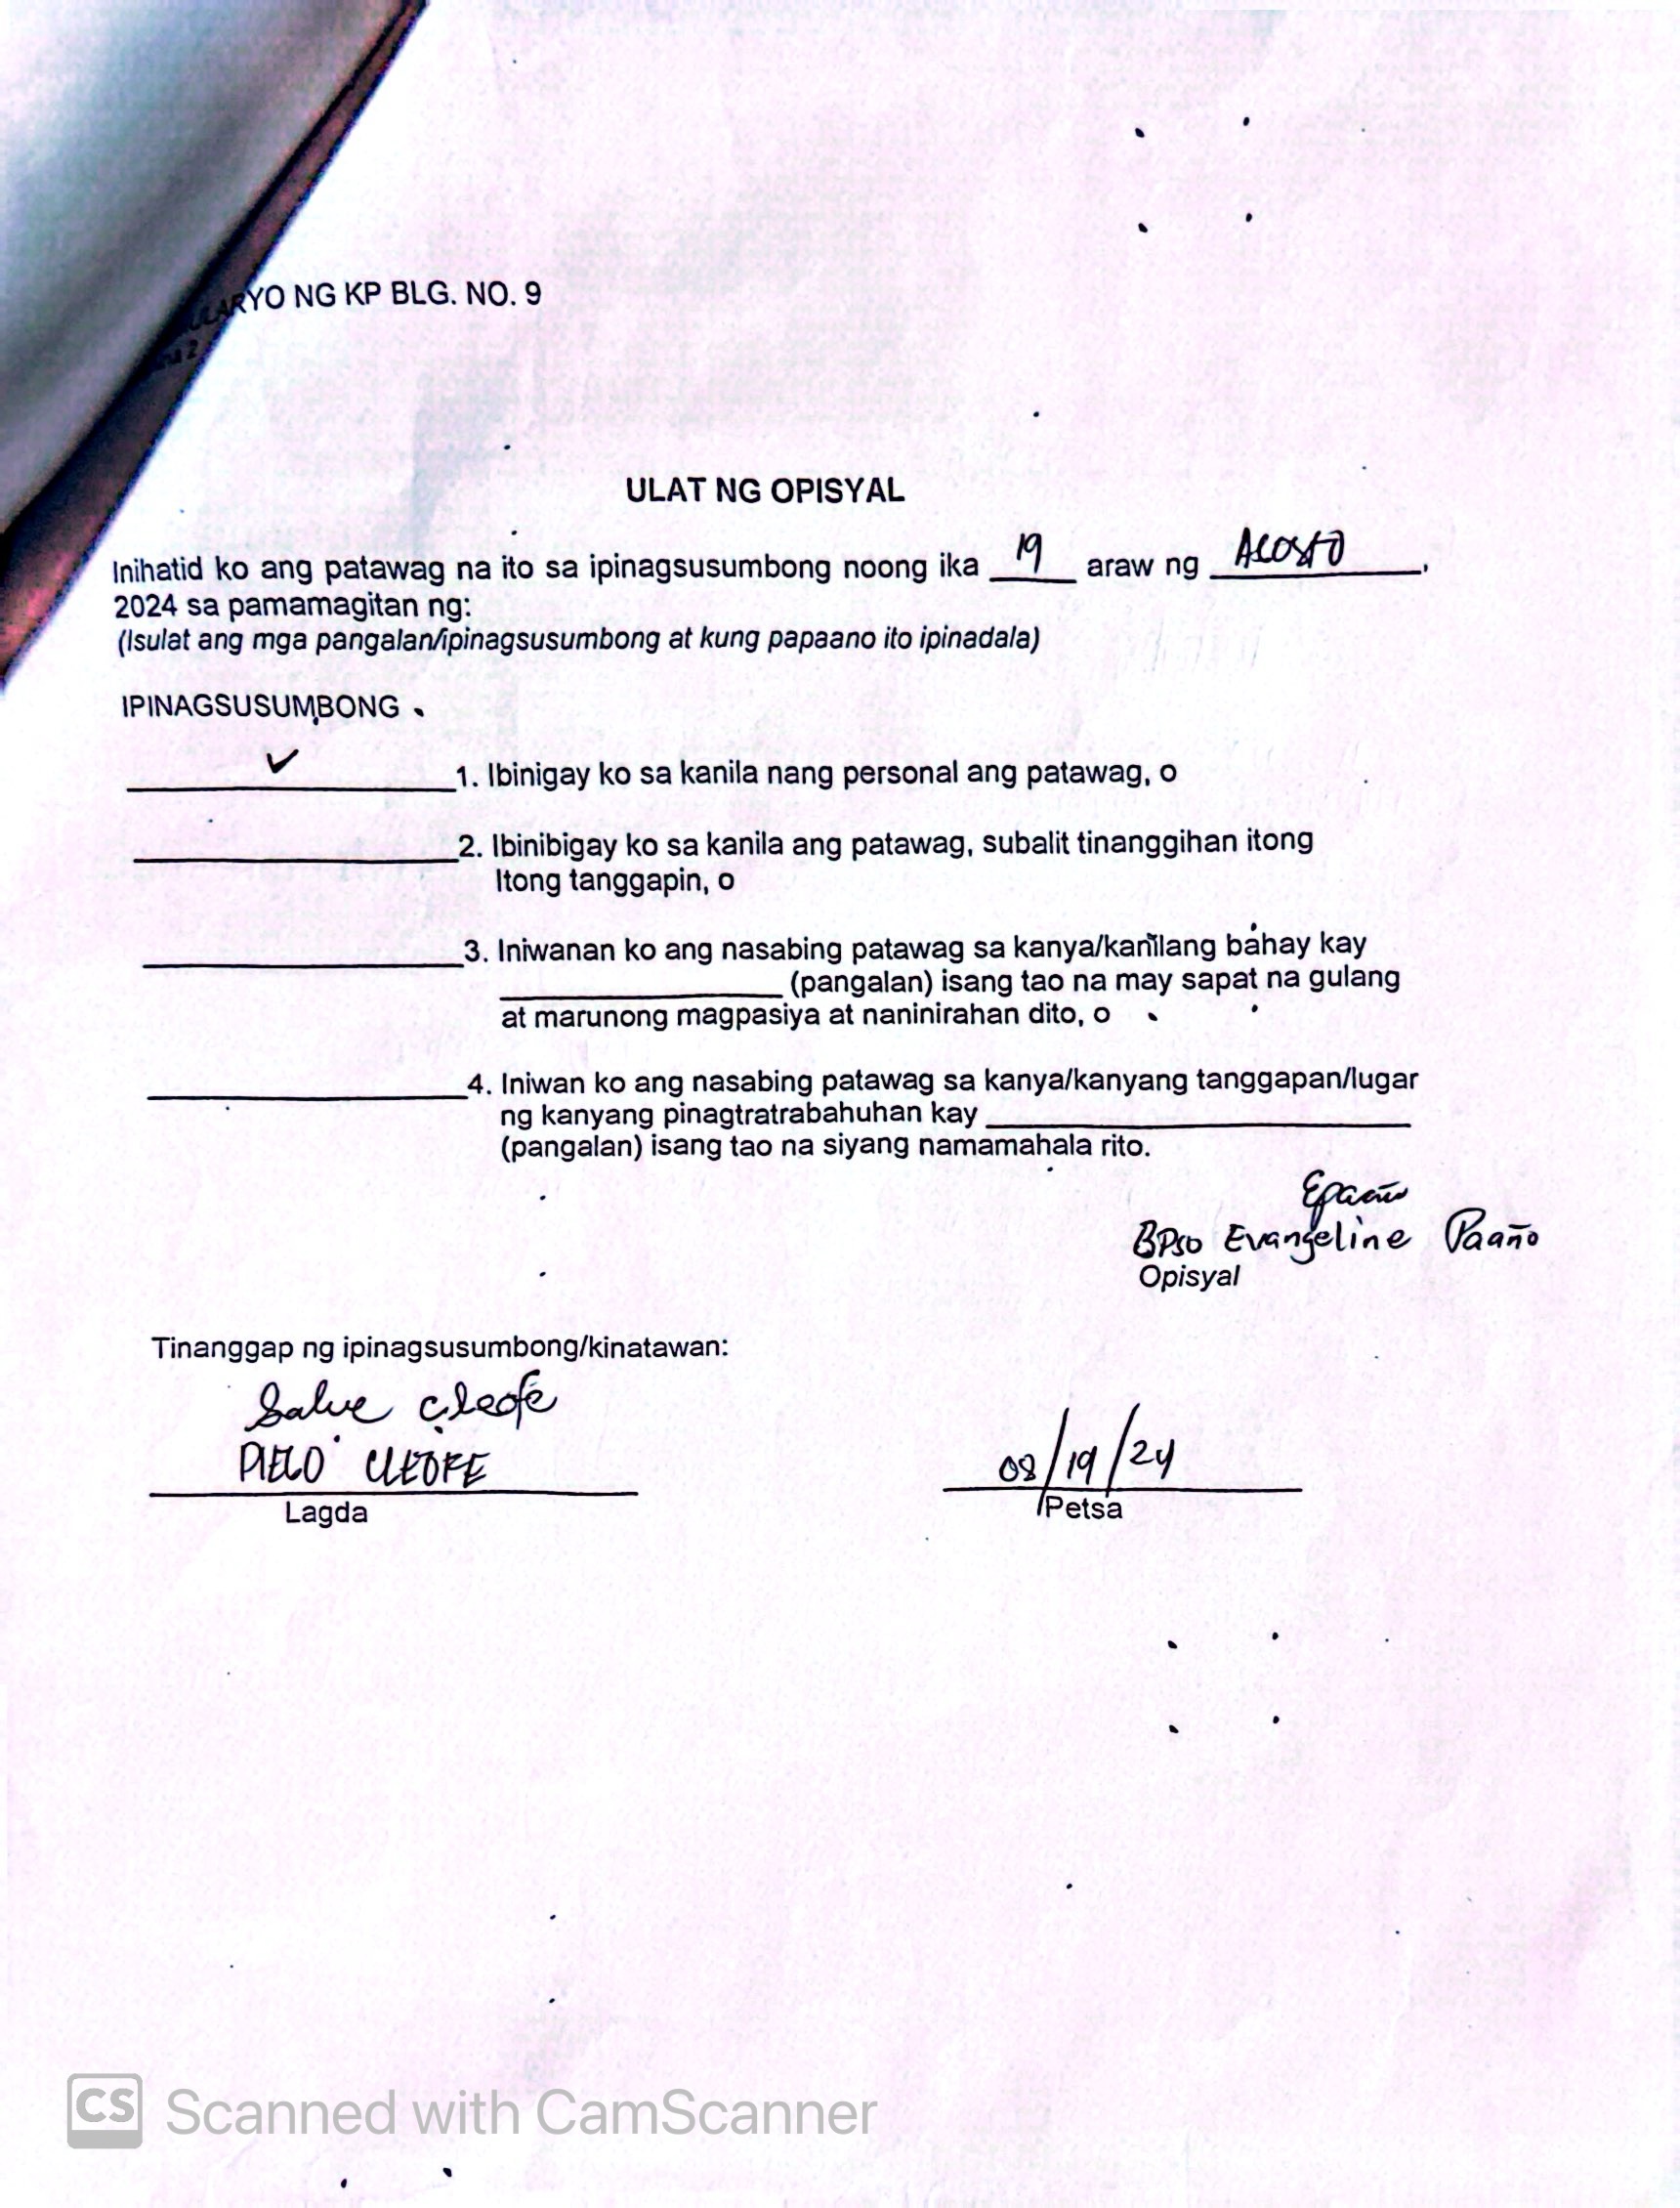 ARYO NG KP BLG. NO. 9
ULAT NG OPISYAL
Inihatid ko ang patawag na ito sa ipinagsusumbong noong ika 19 araw ng AGOSTO,
2024 sa pamamagitan ng:
(Isulat ang mga pangalan/ipinagsusumbong at kung papaano ito ipinadala)
IPINAGSUSUMBONG
✓ 1. Ibinigay ko sa kanila nang personal ang patawag, o
2. Ibinibigay ko sa kanila ang patawag, subalit tinanggihan itong
Itong tanggapin, o
3. Iniwanan ko ang nasabing patawag sa kanya/kanilang bahay kay
(pangalan) isang tao na may sapat na gulang
at marunong magpasiya at naninirahan dito, o
4. Iniwan ko ang nasabing patawag sa kanya/kanyang tanggapan/lugar
ng kanyang pinagtratrabahuhan kay
(pangalan) isang tao na siyang namamahala rito.
Epaaño
BPSO Evangeline Paaño
Opisyal
Tinanggap ng ipinagsusumbong/kinatawan:
Salve Cleofe
CLEOFE
08/19/24
Lagda
Petsa
CS Scanned with CamScanner